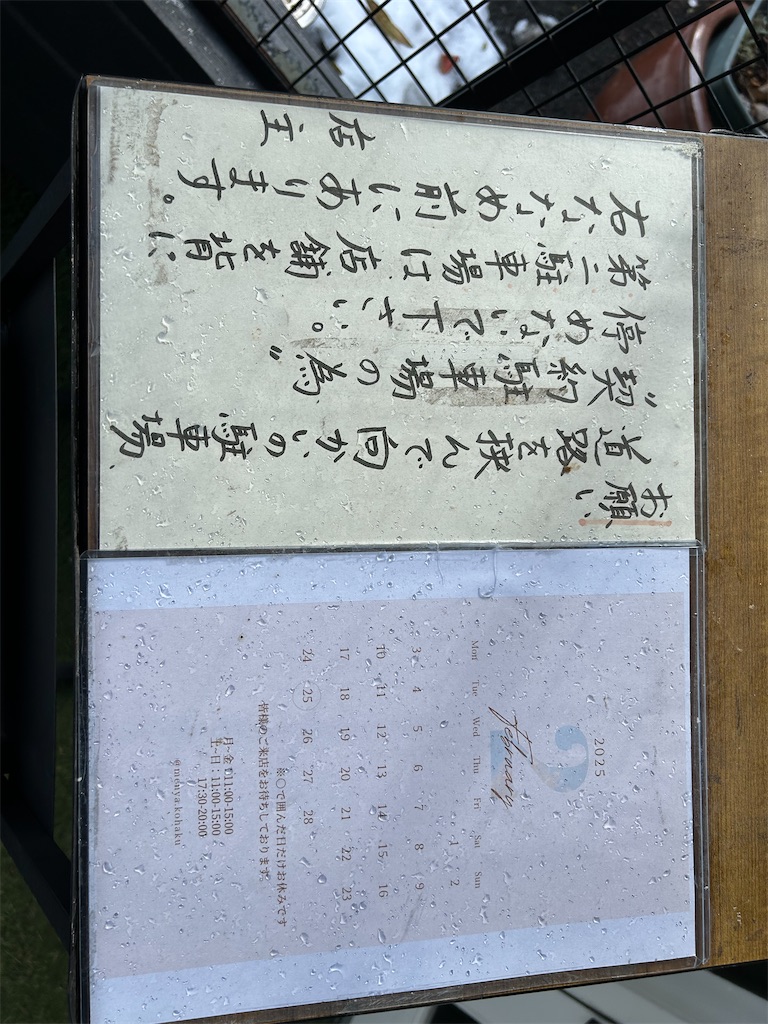 お願い
道路を挟んで向かいの駐車場、
“契約駐車場の為”
停めないで下さい。
第二駐車場は店舗を背に
右ななめ前にあります。
店主
2025
2
February
Mon Tue Wed Thu Fri Sat Sun
1 2
3 4 5 6 7 8 9
10 11 12 13 14 15 16
17 18 19 20 21 22 23
24 25 26 27 28
※○で囲んだ日だけお休みです
皆様のご来店をお待ちしております。
月~金：11:00-15:00
土~日：11:00-15:00
17:30-20:00
@menya.kohaku